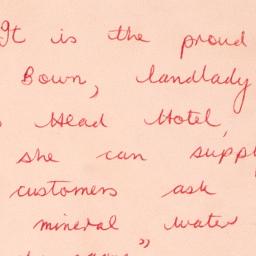 It is the proud
Bown, landlady
Head Hotel,
she can suppl
customers ask
mineral water
"